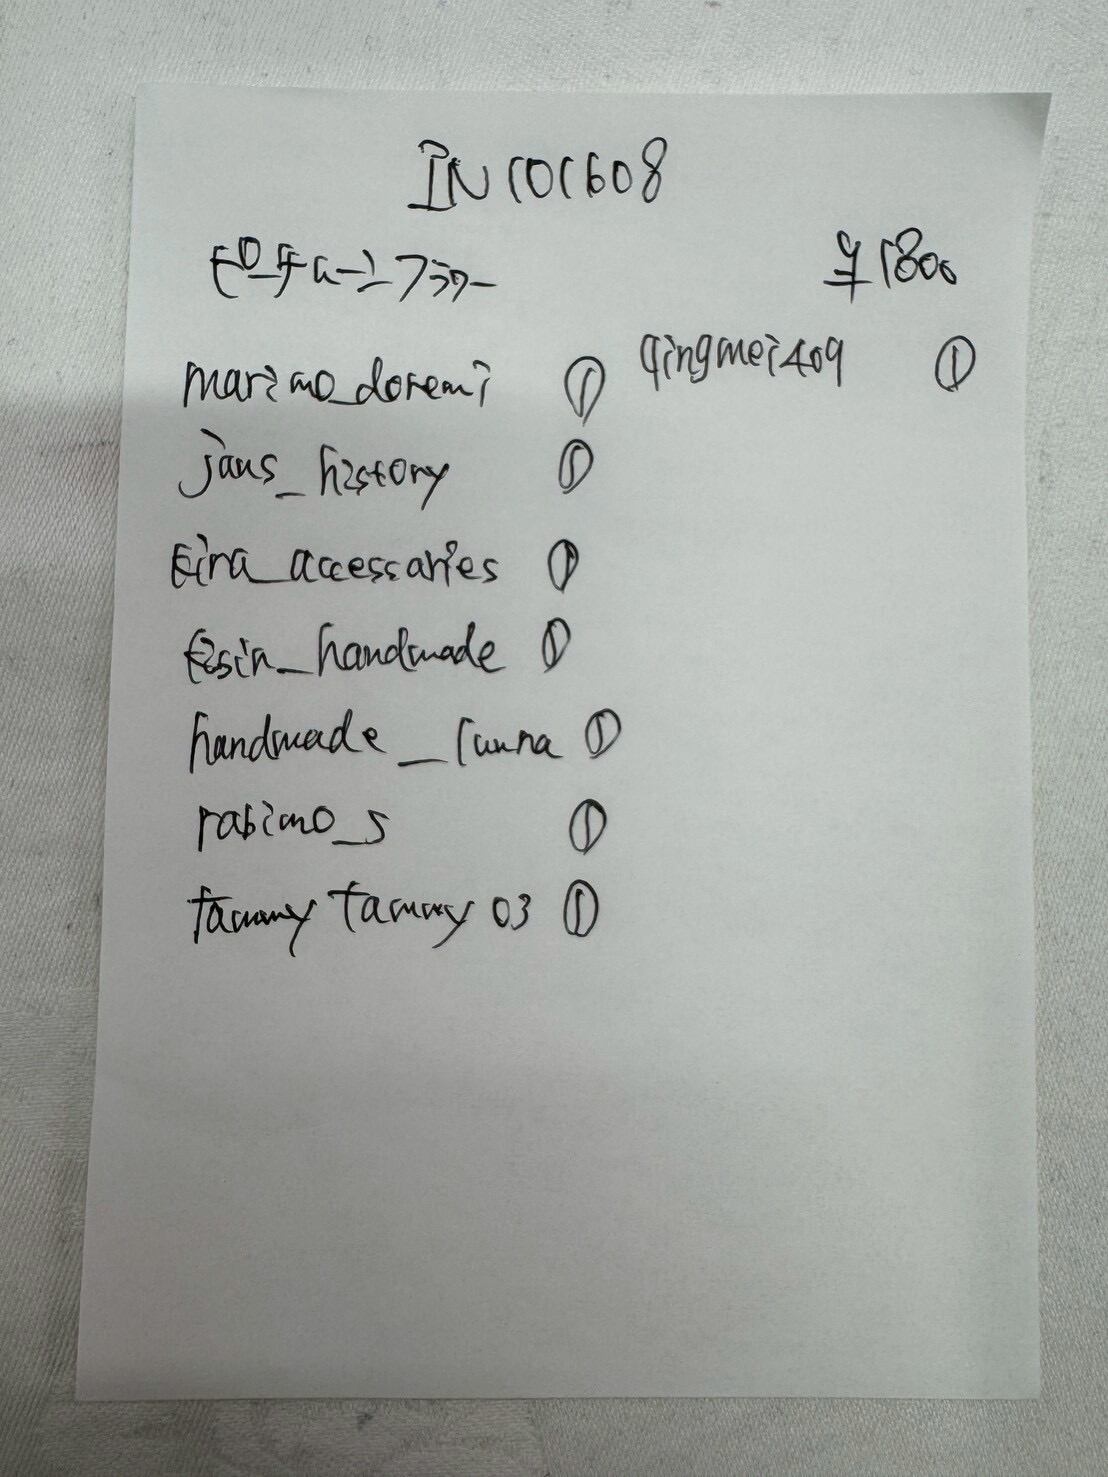 IN101608
モチーフフラワー ¥1800
marimo_doremi ①
qingmei409 ①
jaus_history ①
Eira_accessaries ①
handmade ①
handmade_lunna ①
rabimo_s ①
tammy tammy 03 ①